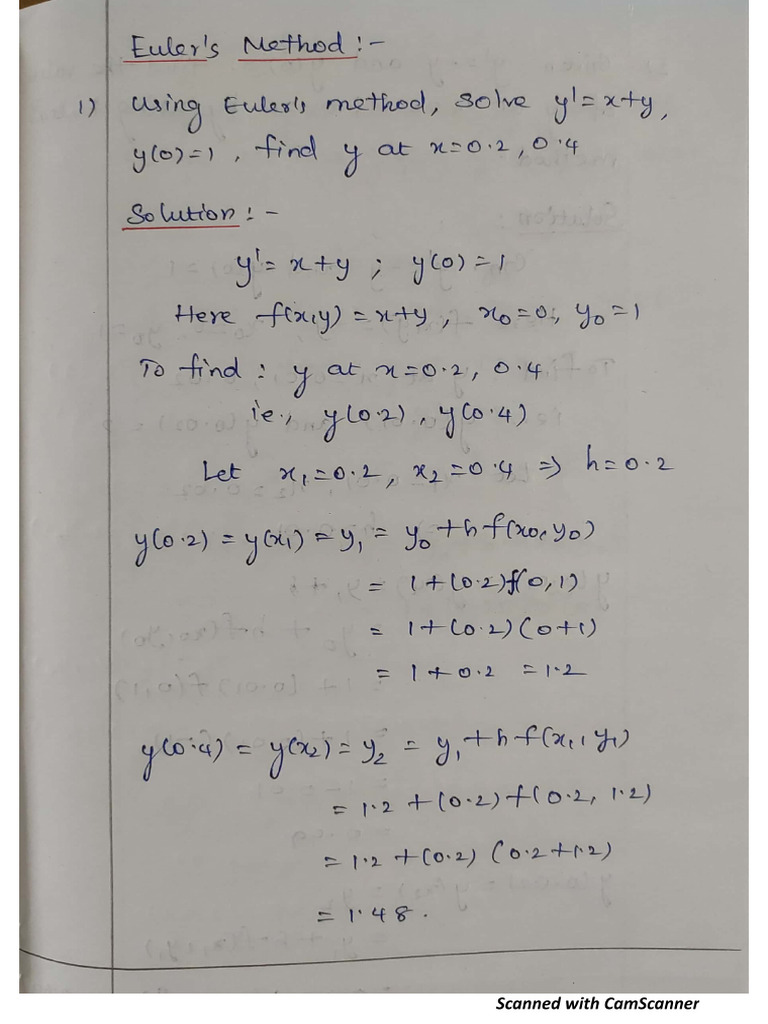 Euler's Method :-
1) Using Euler's method, solve y' = x+y,
y(0)=1, find y at x=0.2, 0.4
Solution :-
y' = x+y ; y(0)=1
Here f(x,y) = x+y, x₀=0, y₀=1
To find : y at x=0.2, 0.4
ie., y(0.2), y(0.4)
Let x₁=0.2, x₂=0.4 ⇒ h=0.2
y(0.2) = y(x₁) = y₁ = y₀ + h f(x₀, y₀)
= 1+(0.2)f(0,1)
= 1+(0.2)(0+1)
= 1+0.2 = 1.2
y(0.4) = y(x₂) = y₂ = y₁ + h f(x₁, y₁)
= 1.2 + (0.2) f(0.2, 1.2)
= 1.2 + (0.2) (0.2+1.2)
= 1.48.
Scanned with CamScanner